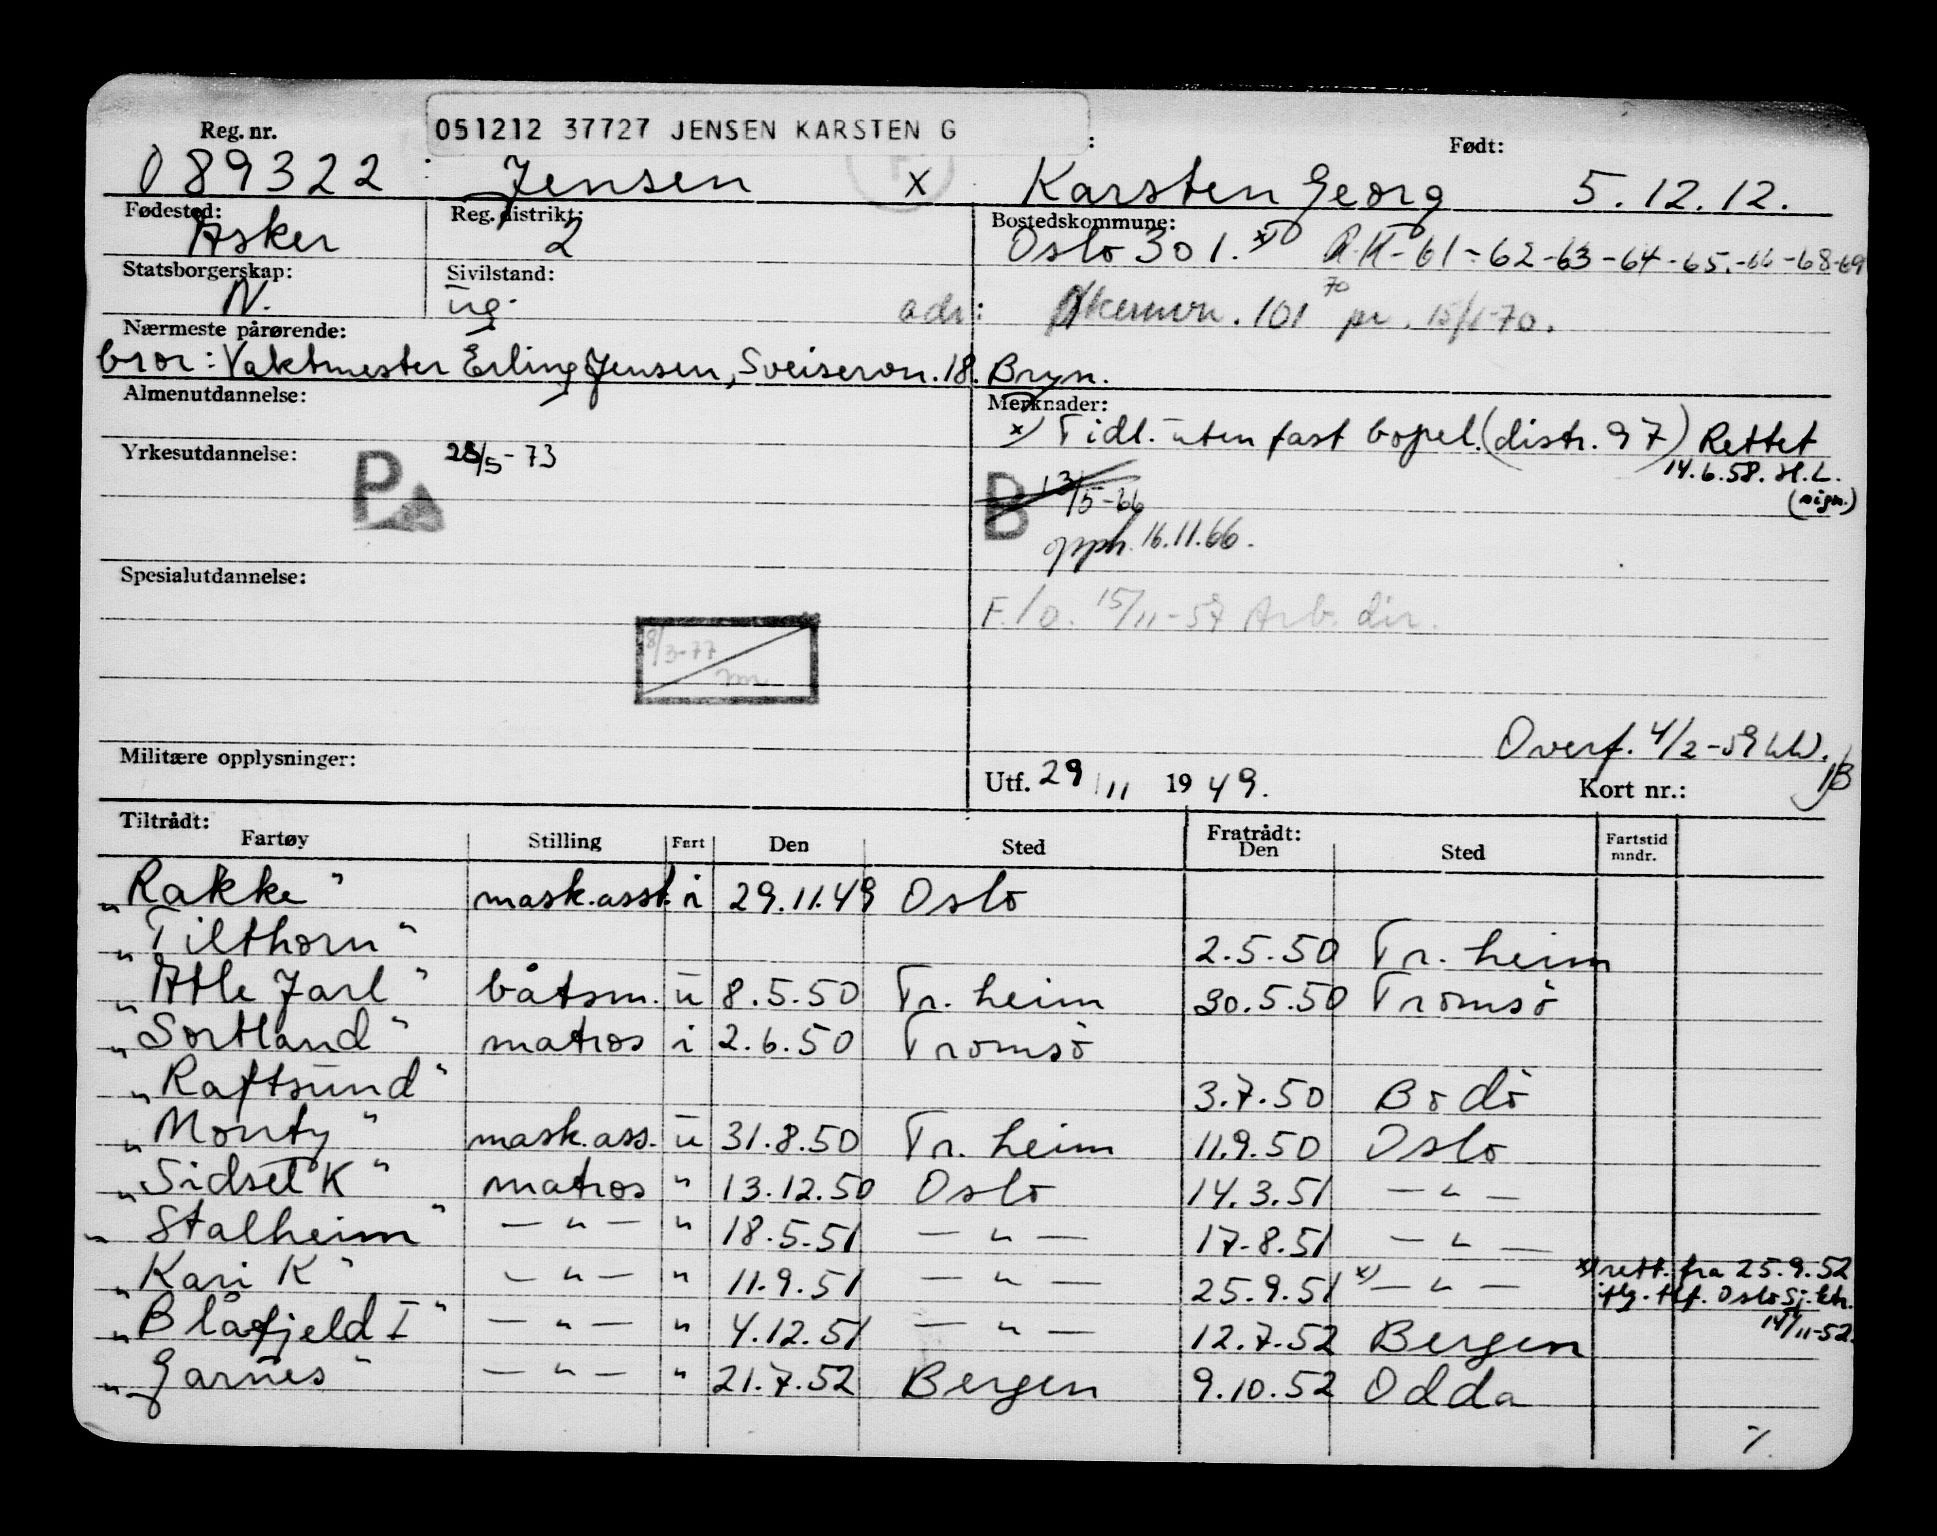 051212 37727 JENSEN KARSTEN G
Reg. nr. : Født:
089322 Jensen x Karsten Georg 5.12.12.
Fødested: Reg. distrikt: Bostedskommune:
Asker 2 Oslo 301. x) R.K-61-62-63-64-65-66-68-69
Statsborgerskap: Sivilstand: 70
N. ug. adr: 101 pr. 15/1-70.
Nærmeste pårørende:
bror: Vaktmester Erling Jensen, Sveiservn. 18. Bryn.
Almenutdannelse: Merknader:
x) Tidl. uten fast bopel. (distr. 97) Rettet
14.6.58. H.L.
(sign.)
Yrkesutdannelse: 28/5-73
P
B 13/5-66
opph. 16.11.66.
Spesialutdannelse:
F./o. 15/11-57 Arb. dir.
8/3-77
Overf. 4/2-59
Militære opplysninger:
Utf. 29/11 1949. Kort nr.:
Tiltrådt: Fratrådt: Fartstid
Fartøy Stilling Fart Den Sted Den Sted mndr.
"Rakke" mask.asst. i 29.11.49 Oslo
"Tilthorn" 2.5.50 Tr.heim
"Atle Jarl" båtsm. u 8.5.50 Tr.heim 30.5.50 Tromsö
"Sortland" matros i 2.6.50 Tromsö
"Raftsund" 3.7.50 Bodö
"Monty" mask.ass. u 31.8.50 Tr.heim 11.9.50 Oslo
"Sidsel K" matros " 13.12.50 Oslo 14.3.51 — " —
"Stalheim" — " — " 18.5.51 — " — 17.8.51 — " —
"Kari K" — " — " 11.9.51 — " — 25.9.51 x) — " — x) rett. fra 25.9.52
iflg. tlf. Oslo Sj.ktr.
14/11-52.
"Blåfjeld I" — " — " 4.12.51 — " — 12.7.52 Bergen
"Garnes" — " — " 21.7.52 Bergen 9.10.52 Odda